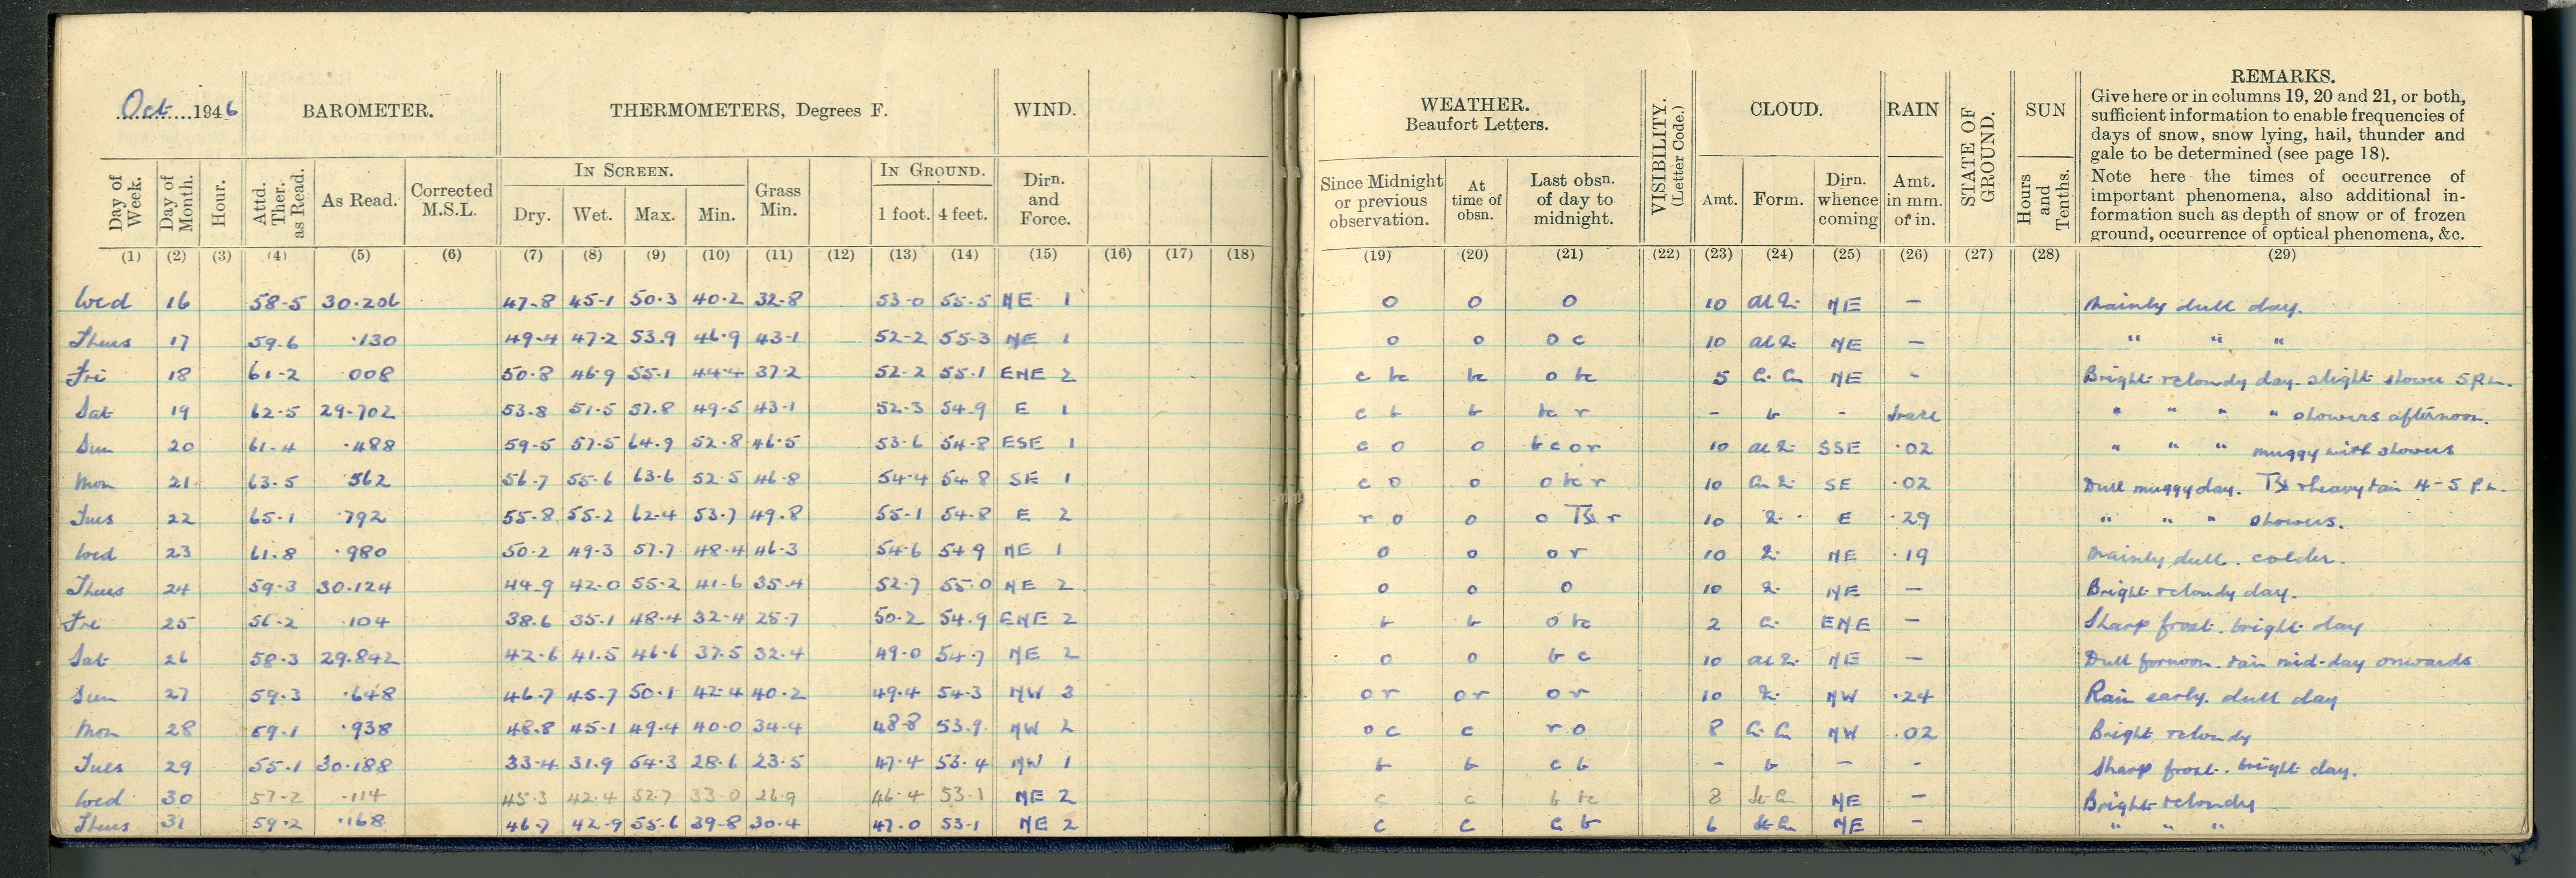 Oct 1946 BAROMETER. THERMOMETERS, Degrees F. WIND.
Day of Week. Day of Month. Hour. Attd. Ther. as Read. As Read. Corrected M.S.L. IN SCREEN. Dry. Wet. Max. Min. Grass Min. IN GROUND. 1 foot. 4 feet. Dirn. and Force.
(1) (2) (3) (4) (5) (6) (7) (8) (9) (10) (11) (12) (13) (14) (15) (16) (17) (18)
Wed 16 58.5 30.206 47.8 45.1 50.3 40.2 32.8 53.0 55.5 NE 1
Thurs 17 59.6 .130 49.4 47.2 53.9 46.9 43.1 52.2 55.3 NE 1
Fri 18 61.2 008 50.8 46.9 55.1 44.4 37.2 52.2 55.1 ENE 2
Sat 19 62.5 29.702 53.8 51.5 57.8 49.5 43.1 52.3 54.9 E 1
Sun 20 61.4 .488 59.5 57.5 64.9 52.8 46.5 53.6 54.8 ESE 1
Mon 21 63.5 562 56.7 55.6 63.6 52.5 46.8 54.4 54.8 SE 1
Tues 22 65.1 .792 55.8 55.2 62.4 53.7 49.8 55.1 54.8 E 2
Wed 23 61.8 .980 50.2 49.3 57.7 48.4 46.3 54.6 54.9 NE 1
Thurs 24 59.3 30.124 44.9 42.0 55.2 41.6 35.4 52.7 55.0 NE 2
Fri 25 56.2 .104 38.6 35.1 48.4 32.4 25.7 50.2 54.9 ENE 2
Sat 26 58.3 29.842 42.6 41.5 46.6 37.5 32.4 49.0 54.7 NE 2
Sun 27 59.3 .648 46.7 45.7 50.1 42.4 40.2 49.4 54.3 NW 3
Mon 28 59.1 .938 48.8 45.1 49.4 40.0 34.4 48.8 53.9 NW 2
Tues 29 55.1 30.188 33.4 31.9 54.3 28.6 23.5 47.4 53.4 NW 1
Wed 30 57.2 .114 45.3 42.4 52.7 33.0 26.9 46.4 53.1 NE 2
Thurs 31 59.2 .168 46.7 42.9 55.6 39.8 30.4 47.0 53.1 NE 2
WEATHER. Beaufort Letters. VISIBILITY. (Letter Code.) CLOUD. RAIN STATE OF GROUND. SUN REMARKS.
Give here or in columns 19, 20 and 21, or both,
sufficient information to enable frequencies of
days of snow, snow lying, hail, thunder and
gale to be determined (see page 18).
Note here the times of occurrence of
important phenomena, also additional in-
formation such as depth of snow or of frozen
ground, occurrence of optical phenomena, &c.
Since Midnight or previous observation. At time of obsn. Last obsn. of day to midnight. Amt. Form. Dirn. whence coming Amt. in mm. of in. Hours and Tenths.
(19) (20) (21) (22) (23) (24) (25) (26) (27) (28) (29)
o o o 10 NE – Mainly dull day.
o o o c 10 NE – " " "
c bc bc o bc 5 NE - Bright & cloudy day. slight shower 5 P.m.
c b b bc r – b - trace " " " " showers afternoon.
c o o b c o r 10 SSE .02 " " " muggy with showers
c o o o bc r 10 SE .02 Dull muggy day. & heavy rain 4-5 P.m.
r o o o r 10 E .29 " " " showers.
o o o r 10 NE .19 Mainly dull. colder.
o o o 10 NE – Bright & cloudy day.
b b o bc 2 ENE – Sharp frost. bright day
o o b c 10 NE – Dull fornoon. rain mid-day onwards
o r o r o r 10 NW .24 Rain early. dull day
o c c r o 8 NW .02 Bright & cloudy
b b c b – b – - Sharp frost. bright day.
c c b bc 8 NE – Bright & cloudy
c c c b 6 NE – " " "